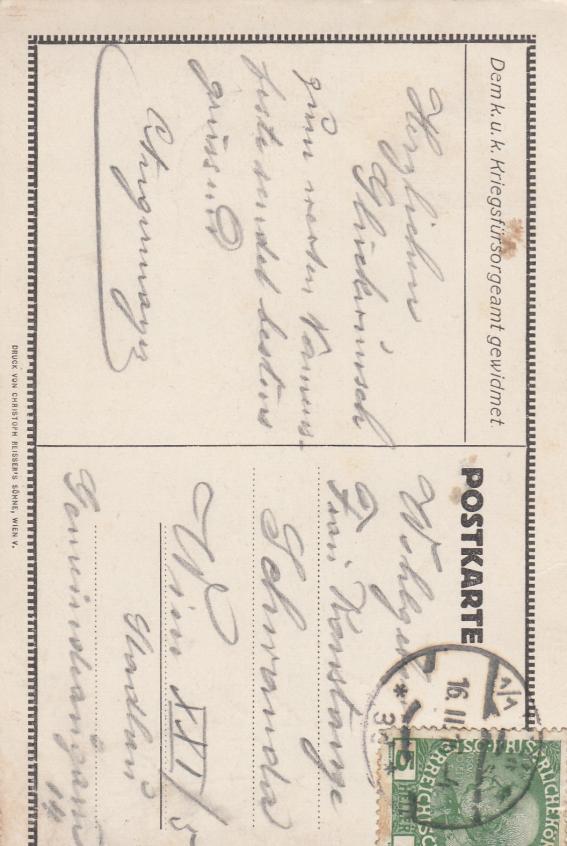 Dem k. u. k. Kriegsfürsorgeamt gewidmet.
Herzlichen
Glückwunsch
zum werten Namens-
feste sendet bestens
grüssend
POSTKARTE
Wohlgeb.
Frau Konstanze
Schwanda
Wien XXI/5
Stadlau
14
16. II
5
HELLER
DRUCK VON CHRISTOPH REISSER'S SÖHNE, WIEN V.